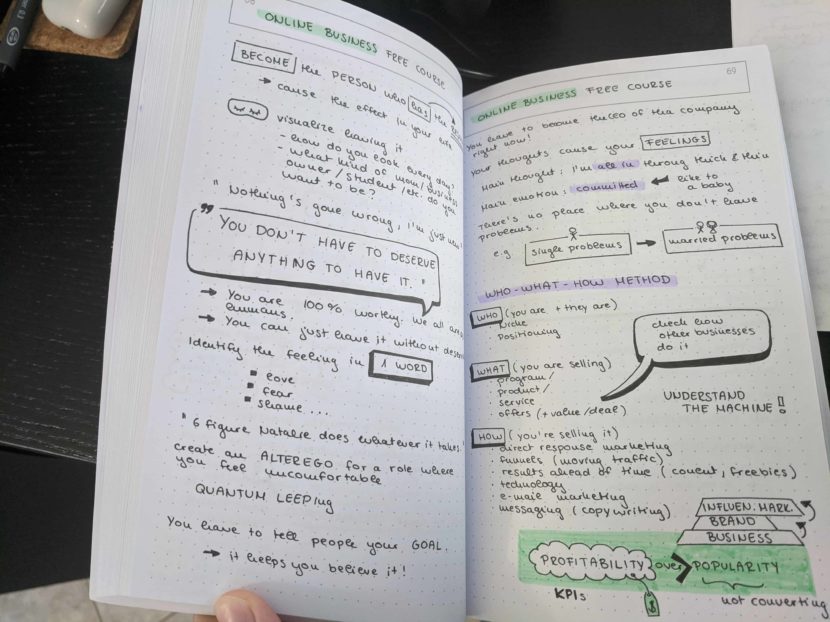 ONLINE BUSINESS FREE COURSE
BECOME the PERSON who has the
→ cause the effect in your life
visualize having it
- how do you look every day?
- what kind of mom/business
owner/student/etc. do you
want to be?
" Nothing's gone wrong, I'm just
" YOU DON'T HAVE TO DESERVE
ANYTHING TO HAVE IT. "
→ You are 100% worthy. We all are
humans.
→ You can just have it without
Identify the feeling in 1 WORD
▪ love
▪ fear
▪ shame ...
" 6 figure Natalie does whatever it takes.
create an ALTEREGO for a role where
you feel uncomfortable
QUANTUM LEEPing
You have to tell people your GOAL.
→ it helps you believe it!
69
ONLINE BUSINESS FREE COURSE
You have to become the CEO of the company
right now!
Your thoughts cause your FEELINGS
Main thought: I'm all in throug thick & thin
Main emotion: committed ← like to
a baby
There's no place where you don't have
problems.
e.g single problems → married problems
WHO-WHAT-HOW METHOD
WHO (you are + they are)
· niche
· positioning
check how
other businesses
do it
WHAT (you are selling)
· program/
· product/
· service
· offers (+value/deal)
UNDERSTAND
THE MACHINE!!
HOW (you're selling it)
· direct response marketing
· funnels (moving traffic)
· results ahead of time (conent, freebies)
· technology
· e-mail marketing
· messaging (copywriting)
INFLUEN. MARK.
BRAND
BUSINESS
PROFITABILITY over > POPULARITY
KPIs
$
not converting